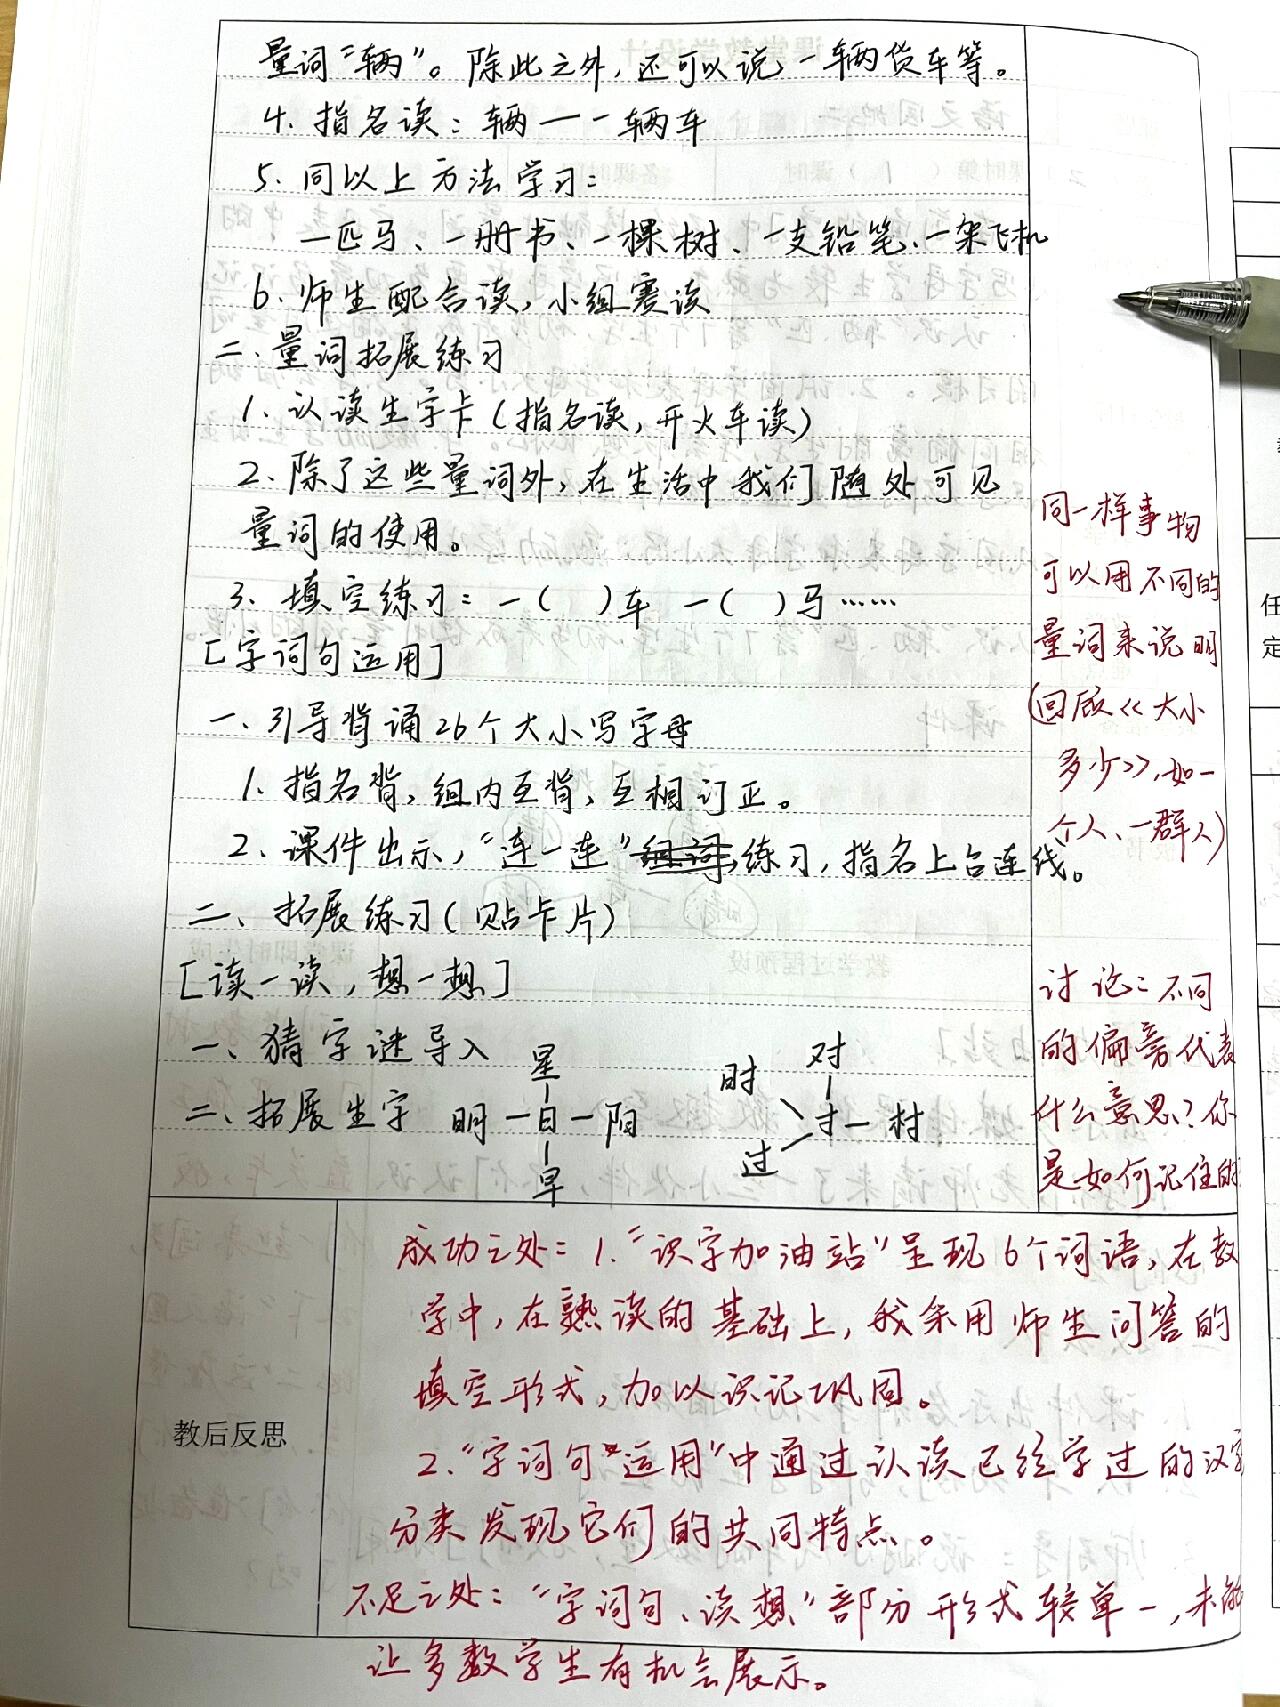 量词“辆”。除此之外,还可以说一辆货车等。
4. 指名读：辆——一辆车
5. 同以上方法学习：
一匹马、一册书、一棵树、一支铅笔、一架飞机
6. 师生配合读,小组赛读
二、量词拓展练习
1. 认读生字卡(指名读,开火车读)
2. 除了这些量词外,在生活中我们随处可见
量词的使用。
3. 填空练习：一( )车 一( )马……
[字词句运用]
一、引导背诵26个大小写字母
1. 指名背,组内互背,互相订正。
2. 课件出示,“连一连”练习,指名上台连线。
二、拓展练习(贴卡片)
[读一读,想一想]
一、猜字谜导入
二、拓展生字
星
明一日一阳
早
时 对
寸一村
过
同一样事物
可以用不同的
量词来说明
(回顾《大小
多少》,如一
个人、一群人)
讨论：不同
的偏旁代表
什么意思?你
是如何记住的
教后反思
成功之处：1.“识字加油站”呈现6个词语,在教
学中,在熟读的基础上,我采用师生问答的
填空形式,加以识记巩固。
2.“字词句运用”中通过认读已经学过的汉字
分类发现它们的共同特点。
不足之处：“字词句、读想”部分形式较单一,未能
让多数学生有机会展示。
任
定